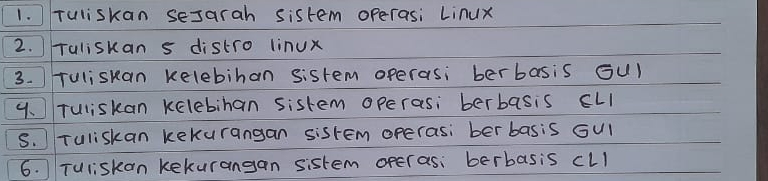 1. Tuliskan sejarah sistem operasi Linux
2. Tuliskan 5 distro linux
3. Tuliskan kelebihan sistem operasi berbasis GUI
4. Tuliskan kelebihan sistem operasi berbasis CLI
5. Tuliskan kekurangan sistem operasi berbasis GUI
6. Tuliskan kekurangan sistem operasi berbasis CLI